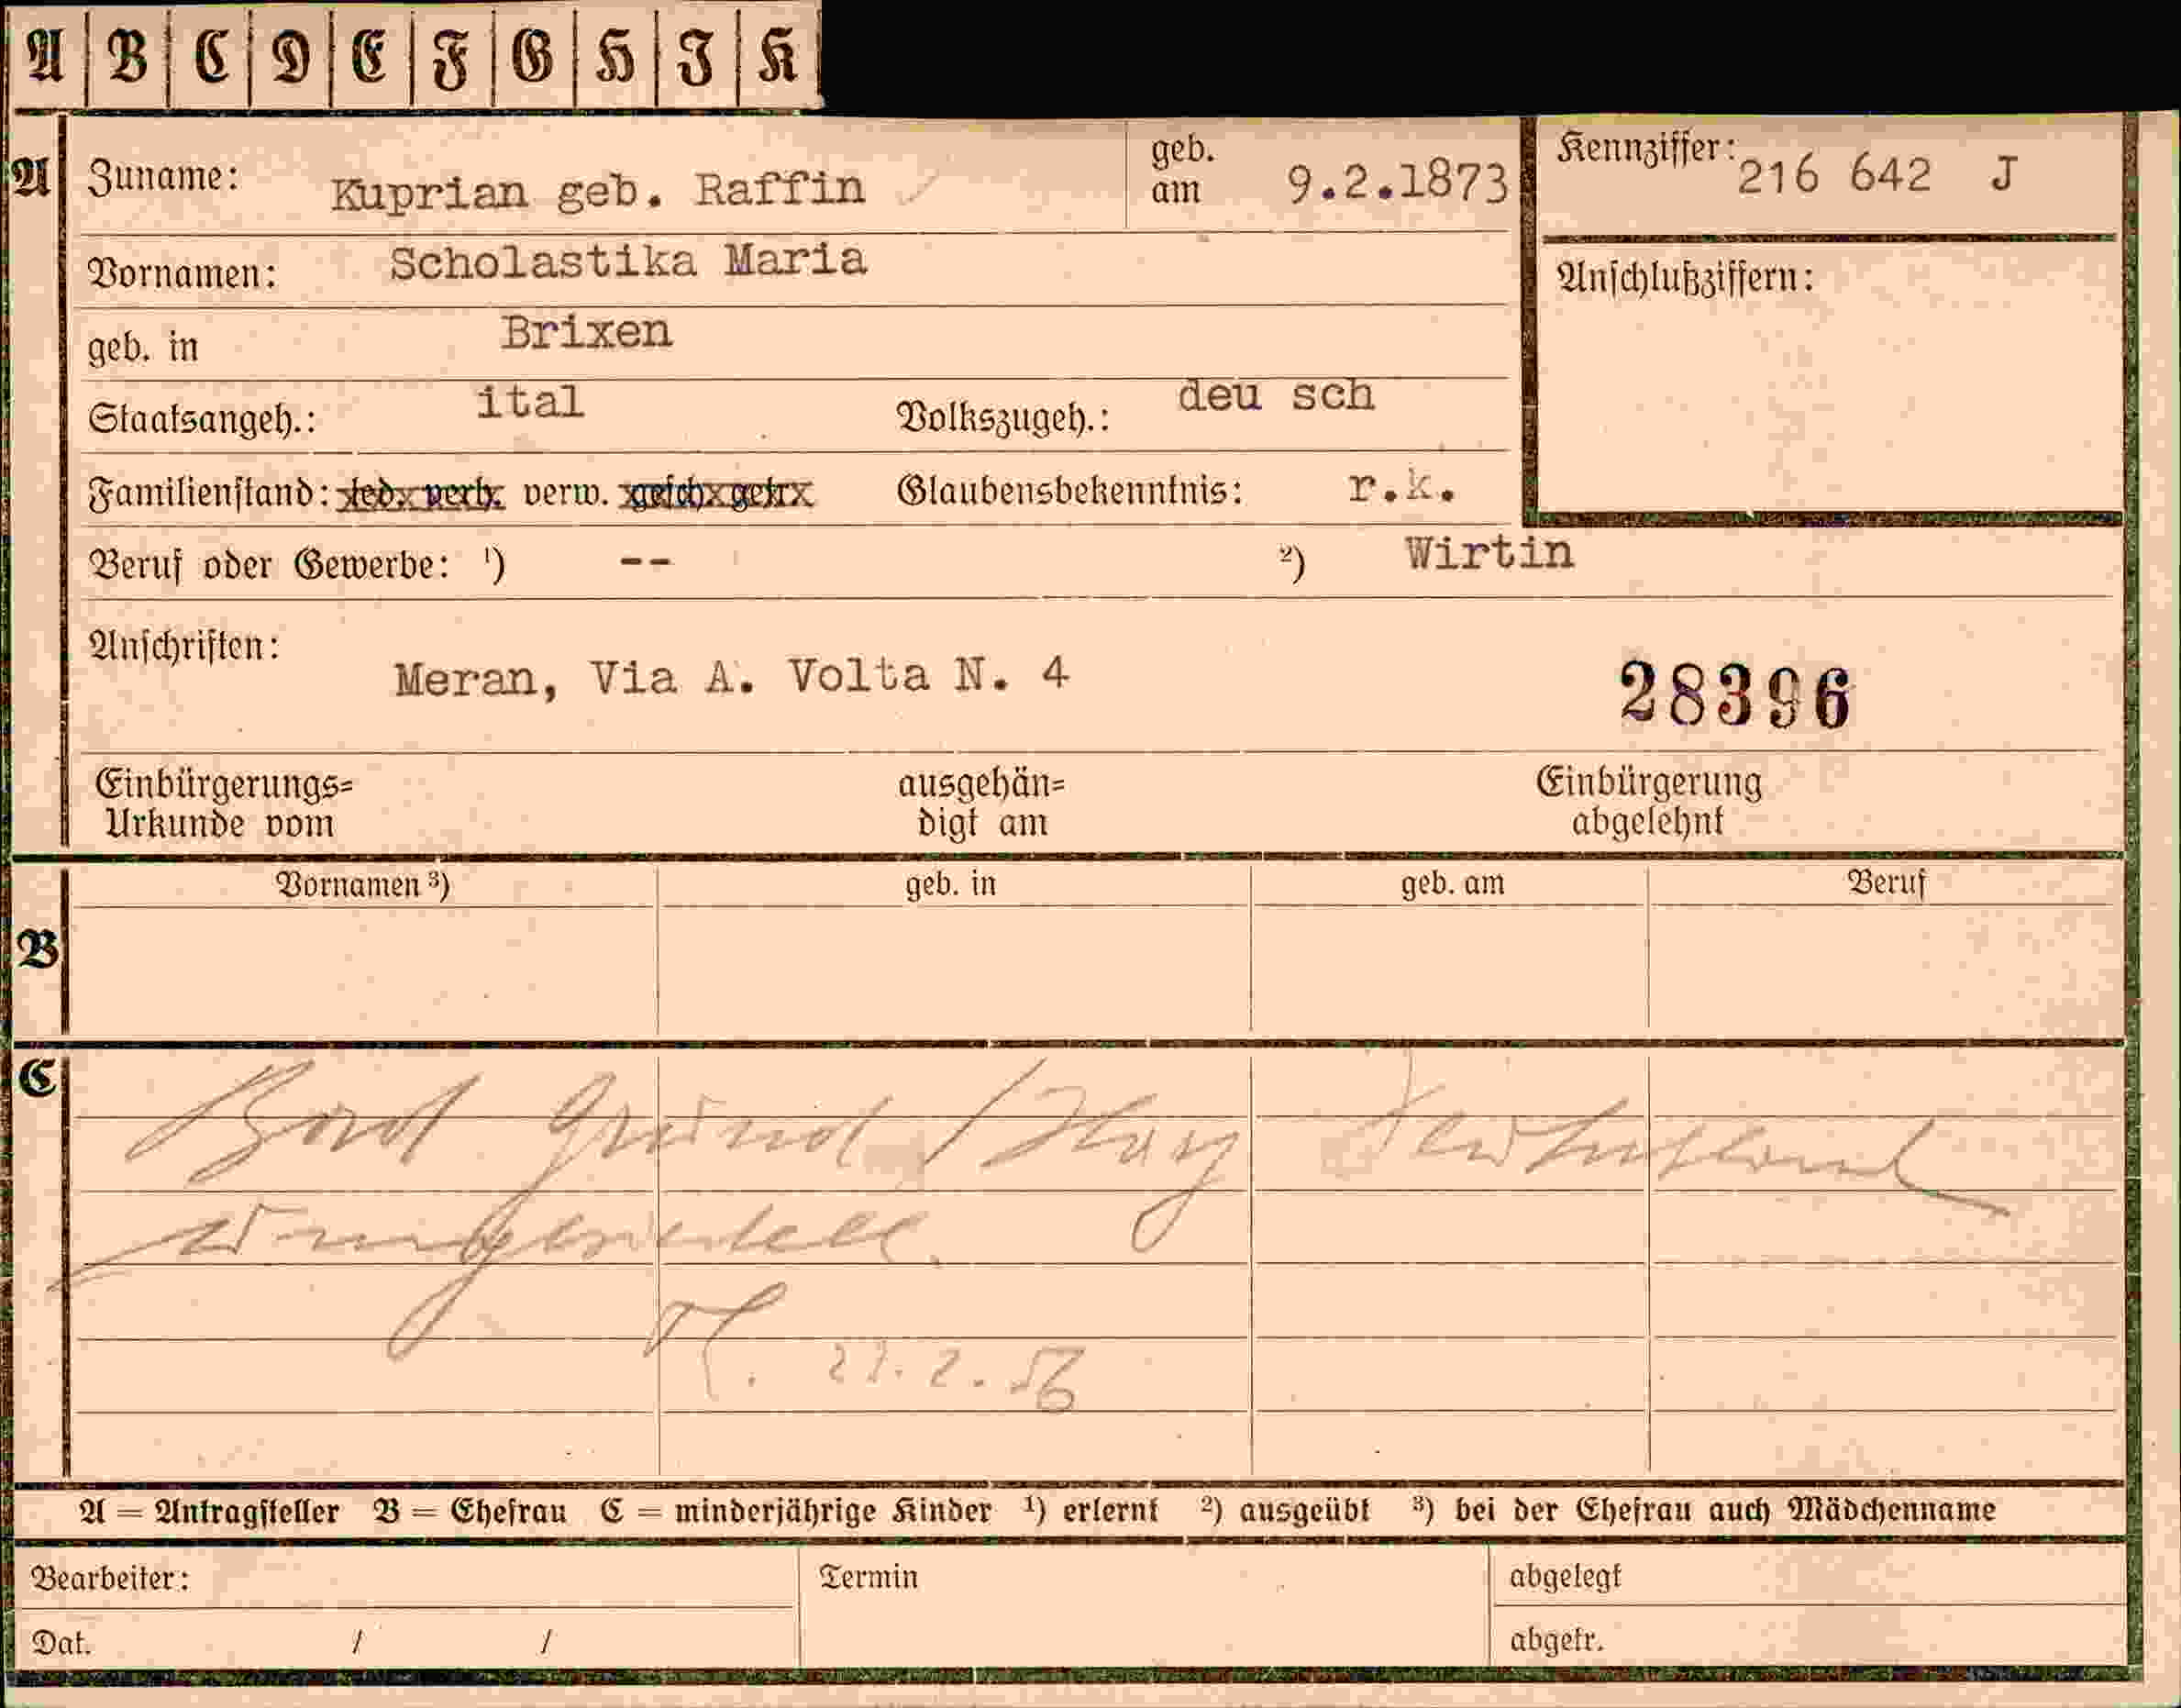 A B C D E F G H J K
A
Zuname: Kuprian geb. Raffin
geb. am 9.2.1873
Kennziffer: 216 642 J
Vornamen: Scholastika Maria
Anschlußziffern:
geb. in Brixen
Staatsangeh.: ital Volkszugeh.: deu sch
Familienstand: led. verh. verw. gesch. getr. Glaubensbekenntnis: r.k.
Beruf oder Gewerbe: ¹) -- ²) Wirtin
Anschriften: Meran, Via A. Volta N. 4
28396
Einbürgerungs=
Urkunde vom
ausgehän=
digt am
Einbürgerung
abgelehnt
Vornamen ³) geb. in geb. am Beruf
B
C
22.2.56
A = Antragsteller B = Ehefrau C = minderjährige Kinder ¹) erlernt ²) ausgeübt ³) bei der Ehefrau auch Mädchenname
Bearbeiter: Termin abgelegt
Dat. / / abgetr.